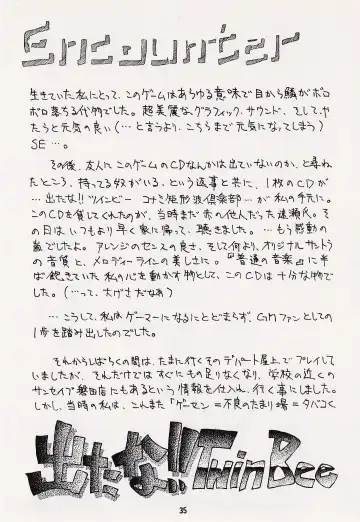 Encounter
生きていた私にとって、このゲームはあらゆる意味で目から鱗がボロ
ボロ落ちる代物でした。超美麗なグラフィック、サウンド、そして、や
たらと元気の良い(…と言うより、こちらまで元気になってしまう)
SE…。
その後、友人にこのゲームのCDなんかは出ていないのか、と尋ね
たところ、持ってる奴がいる、という返事と共に、1枚のCDが
…出たな!!ツインビー コナミ矩形波倶楽部…が私の手元に。
このCDを貸してくれたのが、当時まだ赤の他人だった速瀬氏。そ
の日はいつもより早く家に帰って、聴きました。…もう感動の
嵐でしたよ。アレンジのセンスの良さ、そして何より、オリジナルサントラ
の音質と、メロディーラインの美しさに。『普通の音楽』に半
ば飽きていた私の心を動かす物として、このCDは十分な物で
した。(…って、大げさだなぁ)
…こうして、私はゲーマーになるにとどまらず、GMファンとしての
1歩を踏み出したのでした。
それからしばらくの間は、たまに行くそのデパート屋上でプレイして
いましたが、それだけではすぐにもの足りなくなり、学校の近くの
サンセイブ磐田店にもあるという情報を仕入れ、行く事にしました。
しかし、当時の私は、これまた「ゲーセン=不良のたまり場=タバコく
出たな!!TwinBee
35